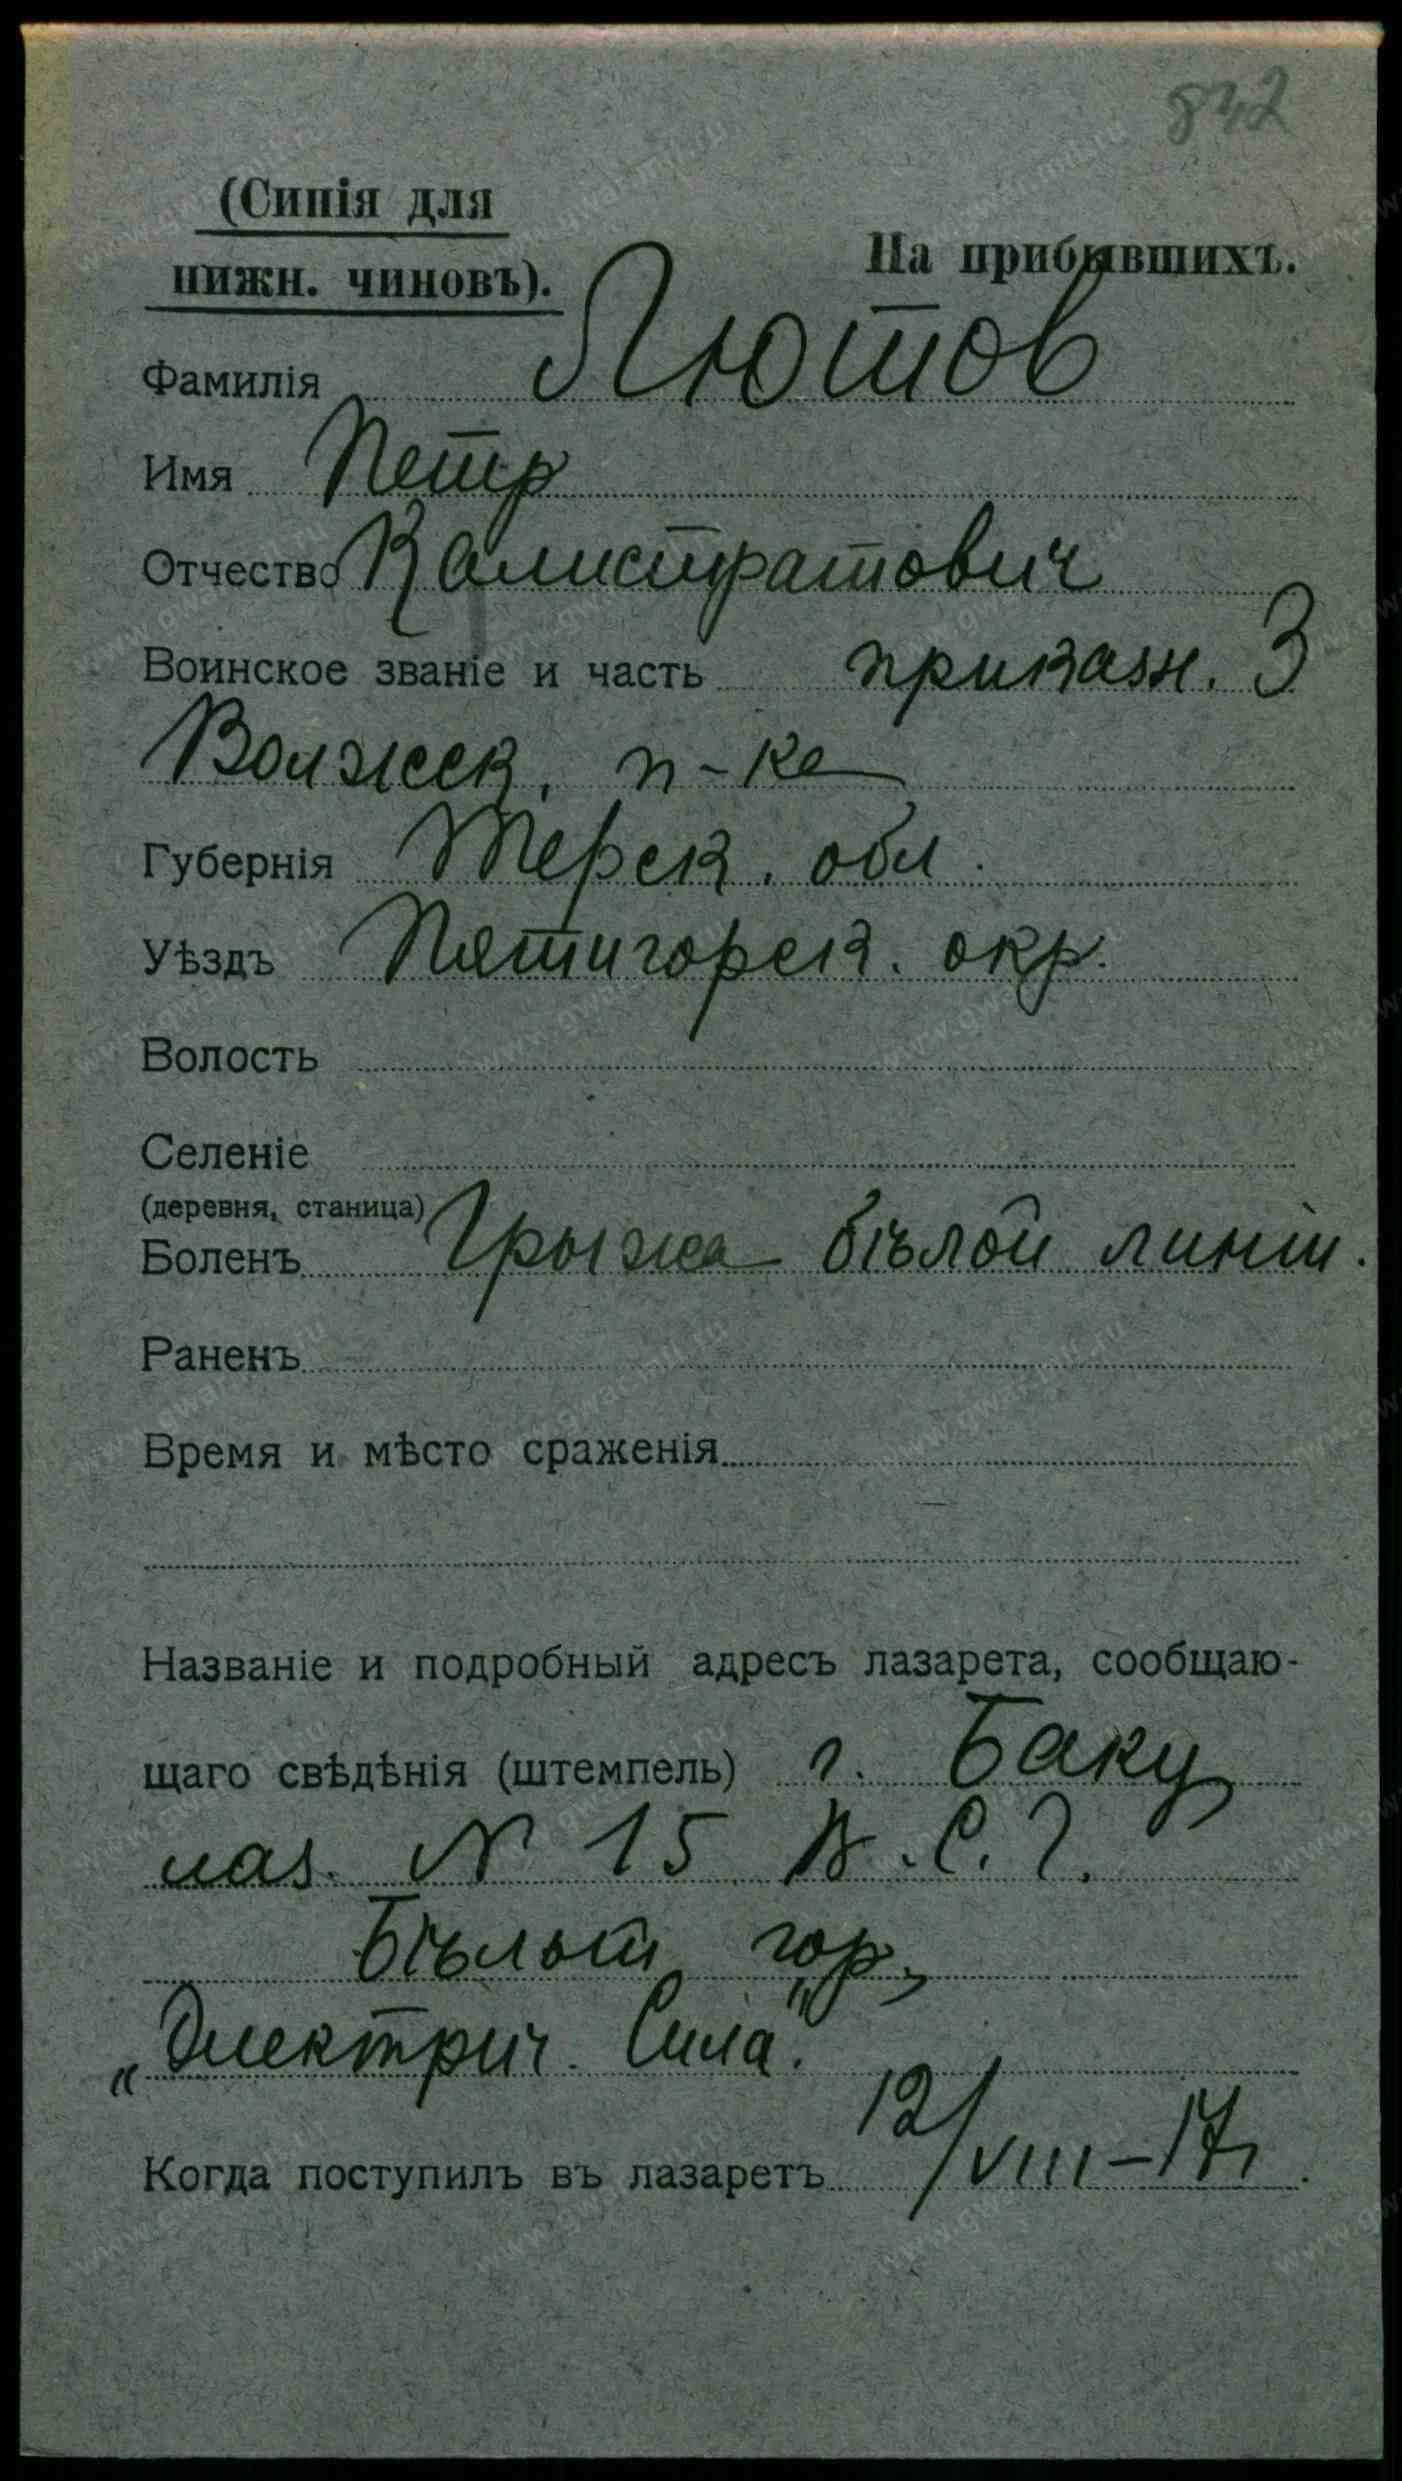 842
(Синія для
нижн. чиновъ).
На прибывшихъ.
Фамилія Лютов
Имя Петр
Отчество Калистратович
Воинское званіе и часть приказн. 3
Волжск. п-ка
Губернія Терск. обл.
Уѣздъ Пятигорск. окр.
Волость
Селеніе
(деревня, станица)
Боленъ Грыжа бѣлой линіи.
Раненъ
Время и мѣсто сраженія
Названіе и подробный адресъ лазарета, сообщаю-
щаго свѣдѣнія (штемпель) г. Баку
лаз. № 15 В.С.Г.
Бѣлый гор.,
„Электрич. Сила".
Когда поступилъ въ лазаретъ 12/VIII-17г.
www.gwar.mil.ru